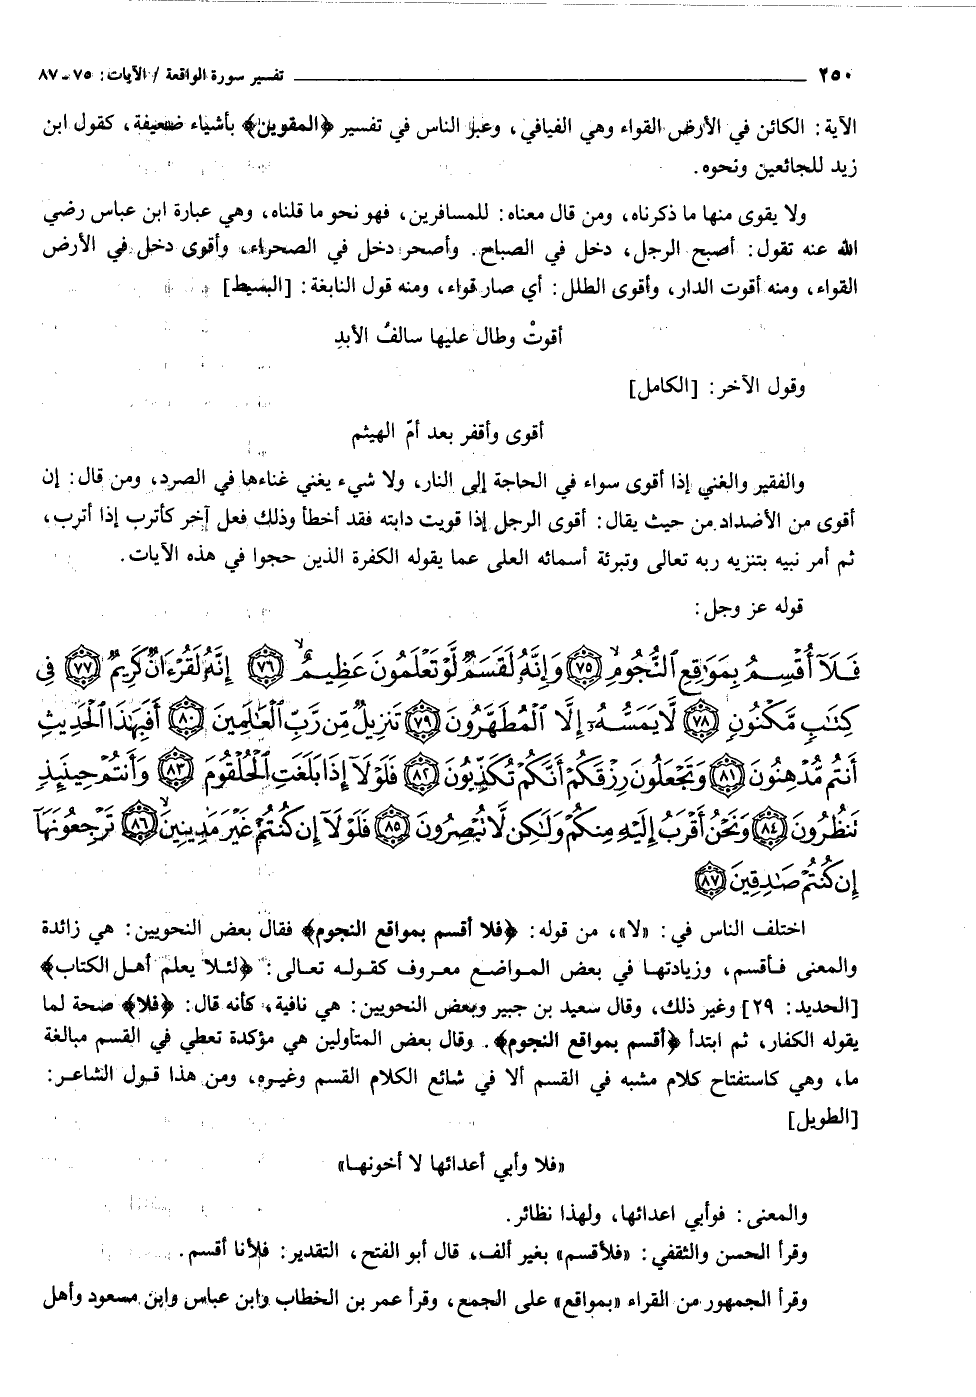 ٢٥٠ تفسير سورة الواقعة / الآيات: ٧٥ - ٨٧
الآية: الكائن في الأرض القواء وهي الفيافي، وعبر الناس في تفسير ﴿المقوين﴾ بأشياء ضعيفة، كقول ابن
زيد للجائعين ونحوه.
ولا يقوى منها ما ذكرناه، ومن قال معناه: للمسافرين، فهو نحو ما قلناه، وهي عبارة ابن عباس رضي
الله عنه تقول: أصبح الرجل، دخل في الصباح. وأصحر دخل في الصحراء، وأقوى دخل في الأرض
القواء، ومنه أقوت الدار، وأقوى الطلل: أي صار قواء، ومنه قول النابغة: [البسيط]
أقوتْ وطال عليها سالفُ الأبدِ
وقول الآخر: [الكامل]
أقوى وأقفر بعد أمّ الهيثم
والفقير والغني إذا أقوى سواء في الحاجة إلى النار، ولا شيء يغني غناءها في الصرد، ومن قال: إن
أقوى من الأضداد من حيث يقال: أقوى الرجل إذا قويت دابته فقد أخطأ وذلك فعل آخر كأترب إذا أترب،
ثم أمر نبيه بتنزيه ربه تعالى وتبرئة أسمائه العلى عما يقوله الكفرة الذين حجوا في هذه الآيات.
قوله عز وجل:
فَلَآ أُقْسِمُ بِمَوَٰقِعِ ٱلنُّجُومِ ﴿٧٥﴾ وَإِنَّهُۥ لَقَسَمٌ لَّوْ تَعْلَمُونَ عَظِيمٌ ﴿٧٦﴾ إِنَّهُۥ لَقُرْءَانٌ كَرِيمٌ ﴿٧٧﴾ فِى
كِتَٰبٍ مَّكْنُونٍ ﴿٧٨﴾ لَّا يَمَسُّهُۥٓ إِلَّا ٱلْمُطَهَّرُونَ ﴿٧٩﴾ تَنزِيلٌ مِّن رَّبِّ ٱلْعَٰلَمِينَ ﴿٨٠﴾ أَفَبِهَٰذَا ٱلْحَدِيثِ
أَنتُم مُّدْهِنُونَ ﴿٨١﴾ وَتَجْعَلُونَ رِزْقَكُمْ أَنَّكُمْ تُكَذِّبُونَ ﴿٨٢﴾ فَلَوْلَآ إِذَا بَلَغَتِ ٱلْحُلْقُومَ ﴿٨٣﴾ وَأَنتُمْ حِينَئِذٍ
تَنظُرُونَ ﴿٨٤﴾ وَنَحْنُ أَقْرَبُ إِلَيْهِ مِنكُمْ وَلَٰكِن لَّا تُبْصِرُونَ ﴿٨٥﴾ فَلَوْلَآ إِن كُنتُمْ غَيْرَ مَدِينِينَ ﴿٨٦﴾ تَرْجِعُونَهَآ
إِن كُنتُمْ صَٰدِقِينَ ﴿٨٧﴾
اختلف الناس في: «لا»، من قوله: ﴿فلا أقسم بمواقع النجوم﴾ فقال بعض النحويين: هي زائدة
والمعنى فأقسم، وزيادتها في بعض المواضع معروف كقوله تعالى: ﴿لئلا يعلم أهل الكتاب﴾
[الحديد: ٢٩] وغير ذلك، وقال سعيد بن جبير وبعض النحويين: هي نافية، كأنه قال: ﴿فلا﴾ صحة لما
يقوله الكفار، ثم ابتدأ ﴿أقسم بمواقع النجوم﴾. وقال بعض المتأولين هي مؤكدة تعطي في القسم مبالغة
ما، وهي كاستفتاح كلام مشبه في القسم ألا في شائع الكلام القسم وغيره، ومن هذا قول الشاعر:
[الطويل]
«فلا وأبي أعدائها لا أخونها»
والمعنى: فوأبي اعدائها، ولهذا نظائر.
وقرأ الحسن والثقفي: «فلأقسم» بغير ألف، قال أبو الفتح، التقدير: فلأنا أقسم.
وقرأ الجمهور من القراء «بمواقع» على الجمع، وقرأ عمر بن الخطاب وابن عباس وابن مسعود وأهل